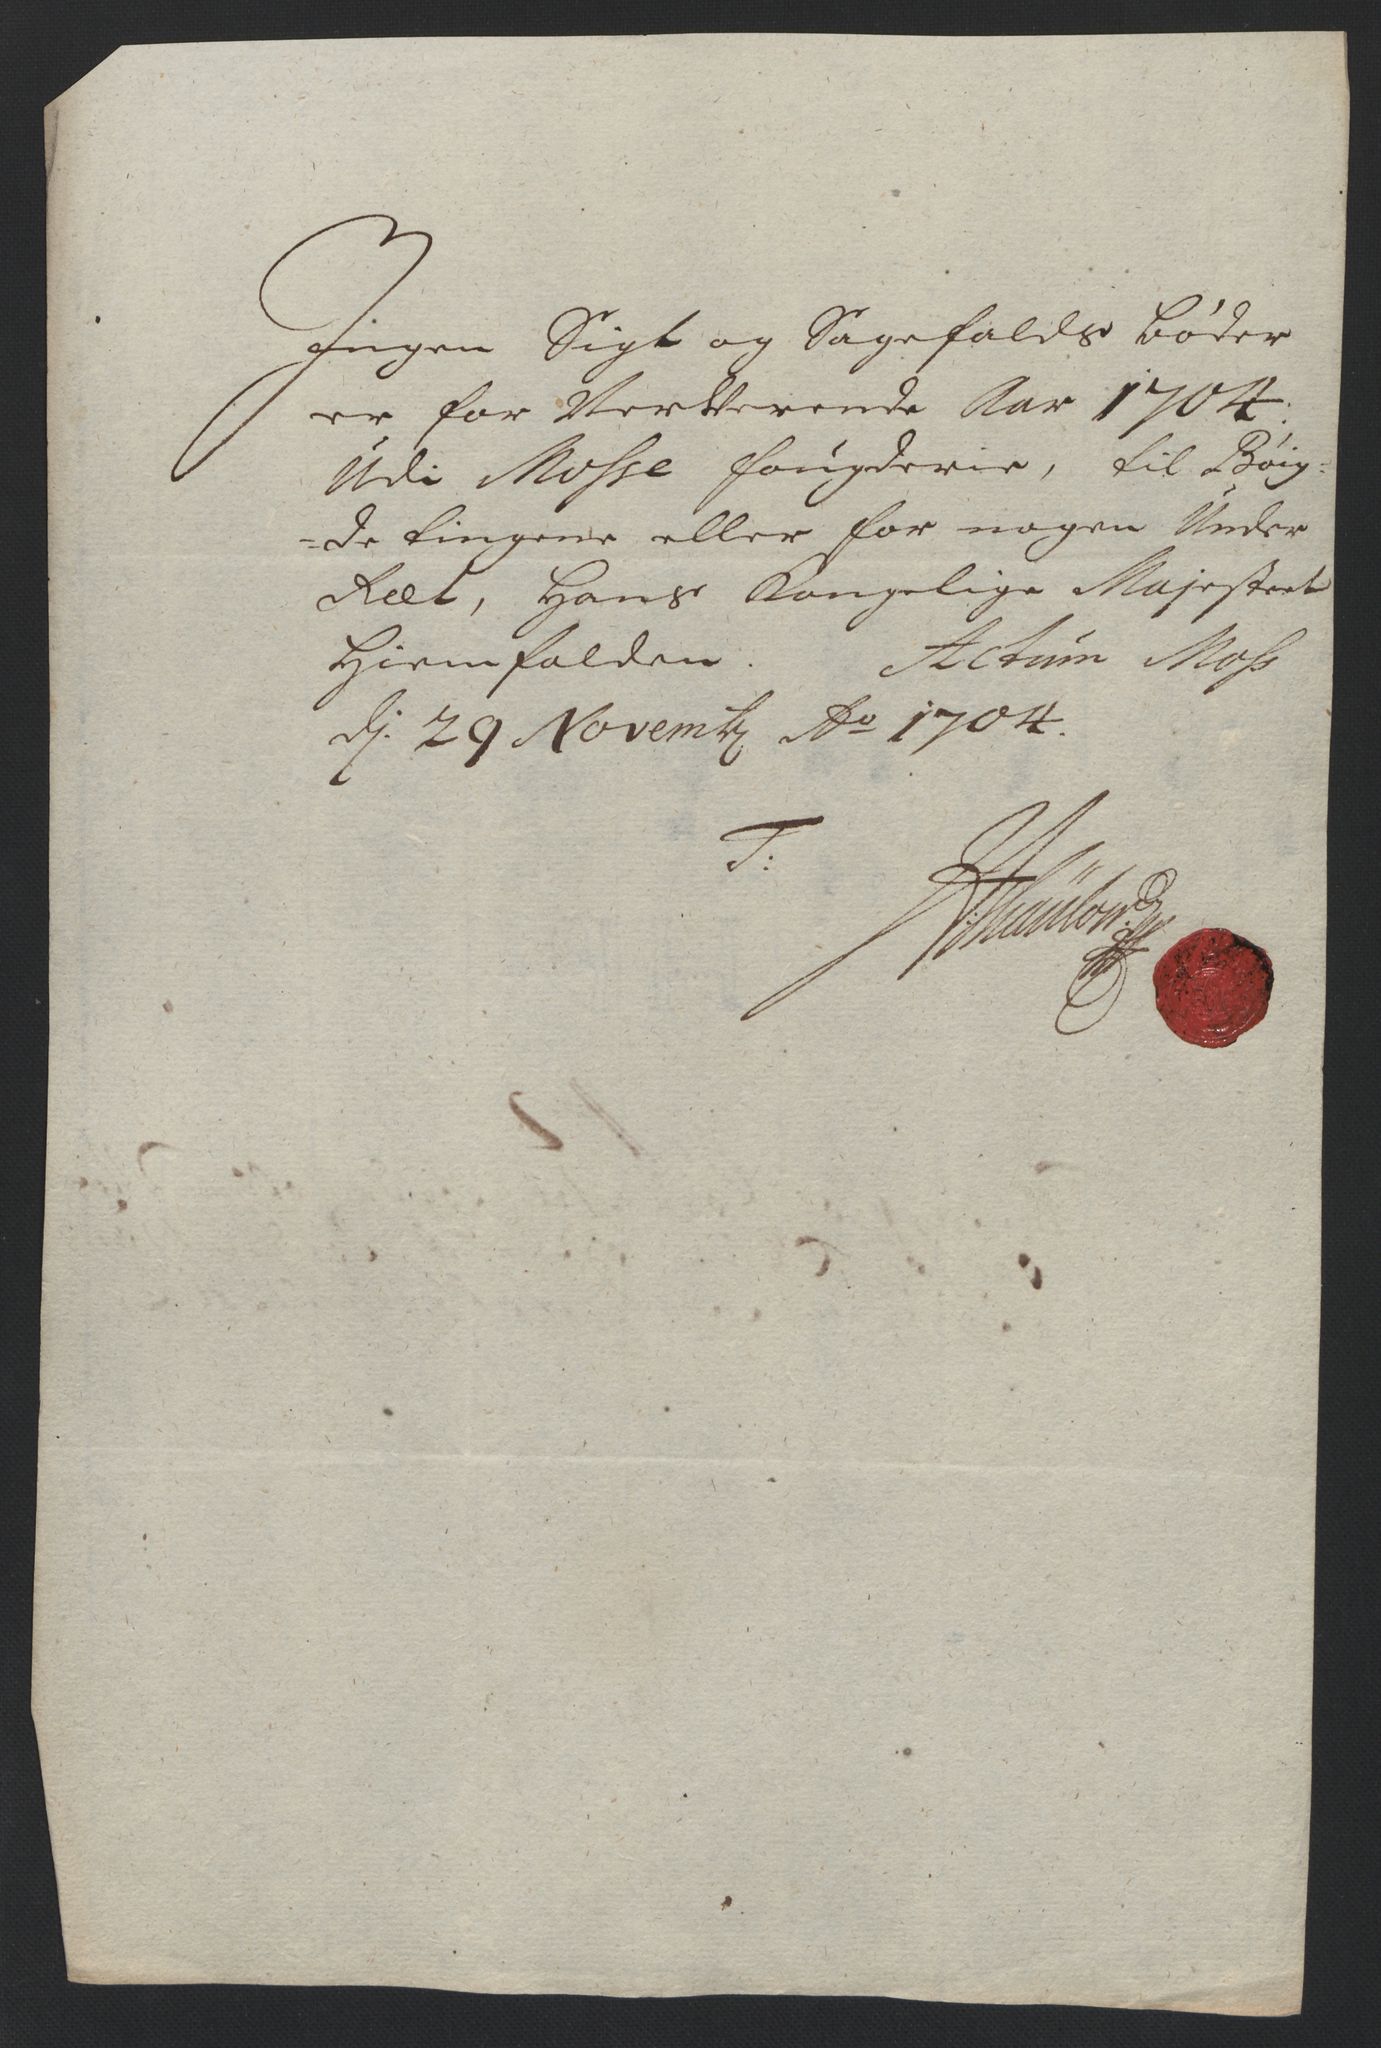 Ingen Sigt og Sagefalds bøder
er for Verværende Aar 1704.
Udi Mosse fougderie, til Bøig=
=de tingene eller for nogen Under
Ræt, Hans Kongelige Majestæt
Hiemfalden. Actum Moss
dj. 29 Novembr Ao 1704.
T: